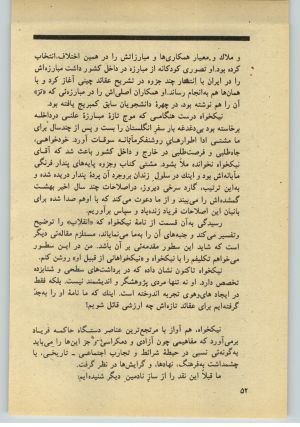 و ملاک و معیار همکاری‌ها و مبارزاتش را در همین اختلاف، انتخاب
کرده بود. او تصوری کودکانه از مبارزه در داخل کشور داشت مبارزه‌اش
را در ایران با انتشار چند جزوه در تشریح عقائد چینی آغاز کرد و با
همان‌ها هم به‌انجام رساند. او همکاران اصلی‌اش را در مبارزه‌تی که «تز»
آن را هم نوشته بود، در چهرهٔ دانشجویان سابق کمبریج یافته بود.
نیکخواه درست هنگامی که موج تازهٔ مبارزهٔ علنی در داخله
برخاسته بود بی‌دغدغه بار سفر انگلستان را بست و پس از چند سال برای
ما مشتی ادا اطوارهای روشنفکرمآبانه سوقات آورد. خودخواهی،
جاه‌طلبی و فرصت‌طلبی در خارج و داخل کشور باعث شد که آقای
نیکخواه نخوانده ملا بشود. مشتی کتاب وجزوه پایه‌های پندار فرنگی
مآبانه‌اش بود و اینک در سلول زندان بروجرد آن پردهٔ پندار دریده شده و
به‌این ترتیب، گارد سرخی دیروز، در اصلاحات چند سال اخیر بهشت
گمشده‌اش را می‌بیند و از ما دعوت می‌کند که با او هم صدا شده برای
بانیان این اصلاحات فریاد زنده‌باد و سپاس برآوریم.
رسیدگی به‌آن قسمت از نامهٔ نیکخواه که «انقلاب» را توضیح
وتفسیر می‌کند و جنبه‌های آن را به‌ما می‌نمایاند، مستلزم مقاله‌ئی دیگر
است که شاید این سطور مقدمه‌ئی بر آن باشد. من در این سطور
می‌خواهم تکلیفم را با نیکخواه و «نیکخواهانی از قبیل او» روشن کنم.
نیکخواه تاکنون نشان داده که در برداشت‌های سطحی و شتابزده
تخصص دارد. او نه تنها مردی پژوهشگر و اندیشمند نیست. بلکه فقط
در ایجاد های‌وهوی تجربه اندوخته است. اینک که ما نامهٔ او را به‌جد
گرفته‌ایم برای عقائد تازه‌اش چه ارزشی قائل شویم!
نیکخواه، هم آواز با مرتجع‌ترین عناصر دستگاه حاکمه فریاد
برمی‌آورد که مفاهیمی چون آزادی و دمکراسی و جز این‌ها را می‌باید
به‌گونه‌ئی نسبی در حیطهٔ شرائط و تجارب اجتماعی ـ تاریخی، با
چشمداشت به‌فرهنگ، نهادها، و گرایش‌ها در نظر گرفت.
ما قبلاً این نقد را از ساز نادمین دیگر شنیده‌ایم:
۵۲